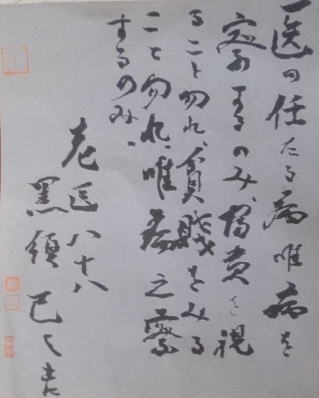 医の任たる病唯病を
察するのみ、富貴を視
ること勿れ、貧賤をみる
こと勿れ、唯病之察
するのみ。
老医八十八
黒須